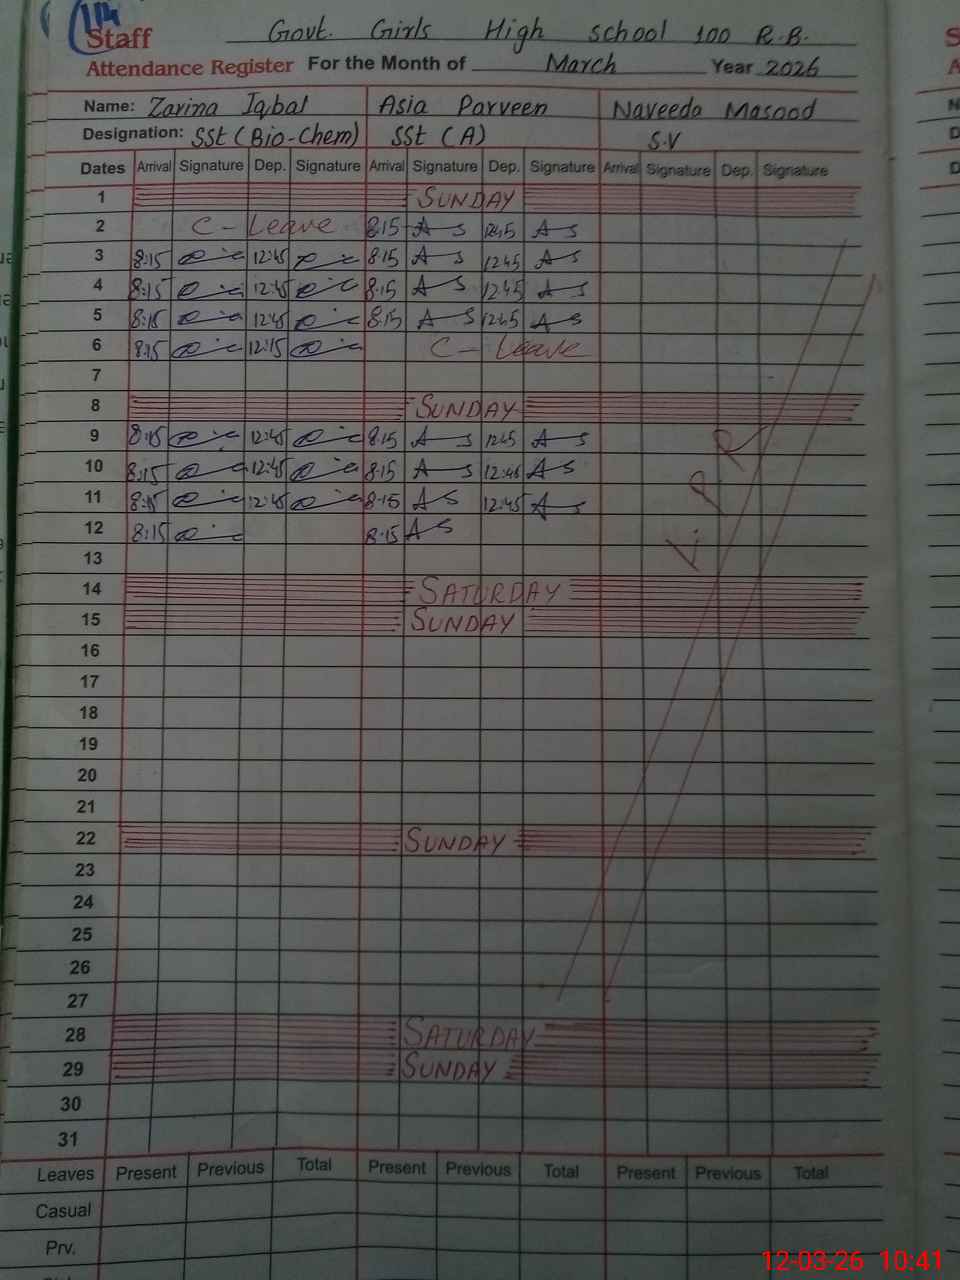 114
Staff Govt. Girls High school 100 R.B.
Attendance Register For the Month of March Year 2026
Name: Zarina Iqbal Asia Parveen Naveeda Masood
Designation: SSt (Bio-Chem) SSt (A) S.V
Dates Arrival Signature Dep. Signature Arrival Signature Dep. Signature Arrival Signature Dep. Signature
1 SUNDAY
2 C - Leave 8:15 A S 12:45 A S
3 8:15 12:45 8:15 A S 12:45 A S
4 8:15 12:45 8:15 A S 12:45 A S
5 8:15 12:45 8:15 A S 12:45 A S
6 8:15 12:15 C - Leave
7
8 SUNDAY
9 8:15 12:45 8:15 A S 12:45 A S
10 8:15 12:45 8:15 A S 12:45 A S
11 8:15 12:45 8:15 A S 12:45 A S
12 8:15 8:15 A S
13
14 SATURDAY
15 SUNDAY
L. P. R
16
17
18
19
20
21
22 SUNDAY
23
24
25
26
27
28 SATURDAY
29 SUNDAY
30
31
Leaves Present Previous Total Present Previous Total Present Previous Total
Casual
Prv.
12-03-26 10:41